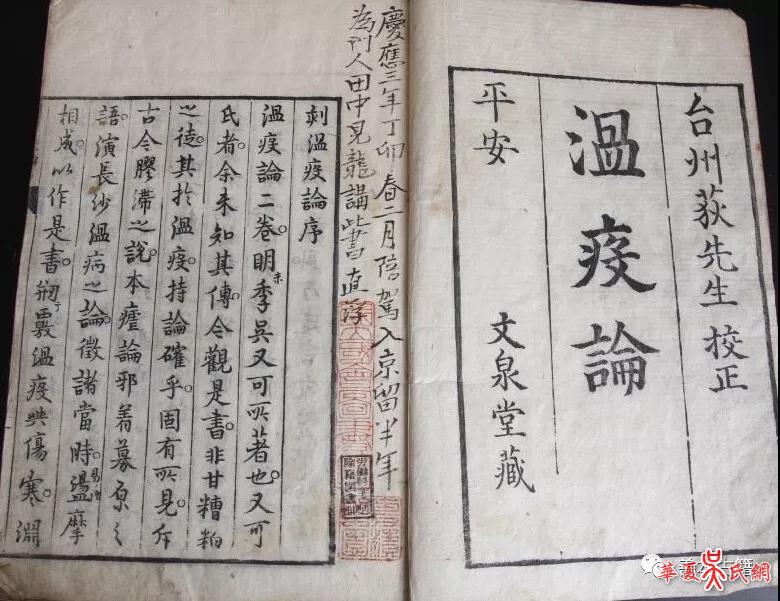 台州荻先生校正
溫疫論
平安 文泉堂藏
慶應三年丁卯春二月陪駕入京留半年
為門人田中見龍講此書 直
刻溫疫論序
溫疫論二卷。明季吳又可所著也。又可
氏者。余未知其傳。今觀是書。非甘糟粕
之徒。其於溫疫。持論確乎。固有所見。斥
古今膠滯之說。本瘧論邪着募原之
語。演長沙溫病之論。徵諸當時。盪摩
相成。以作是書。剏覈溫疫與傷寒。淵
華夏吳氏網